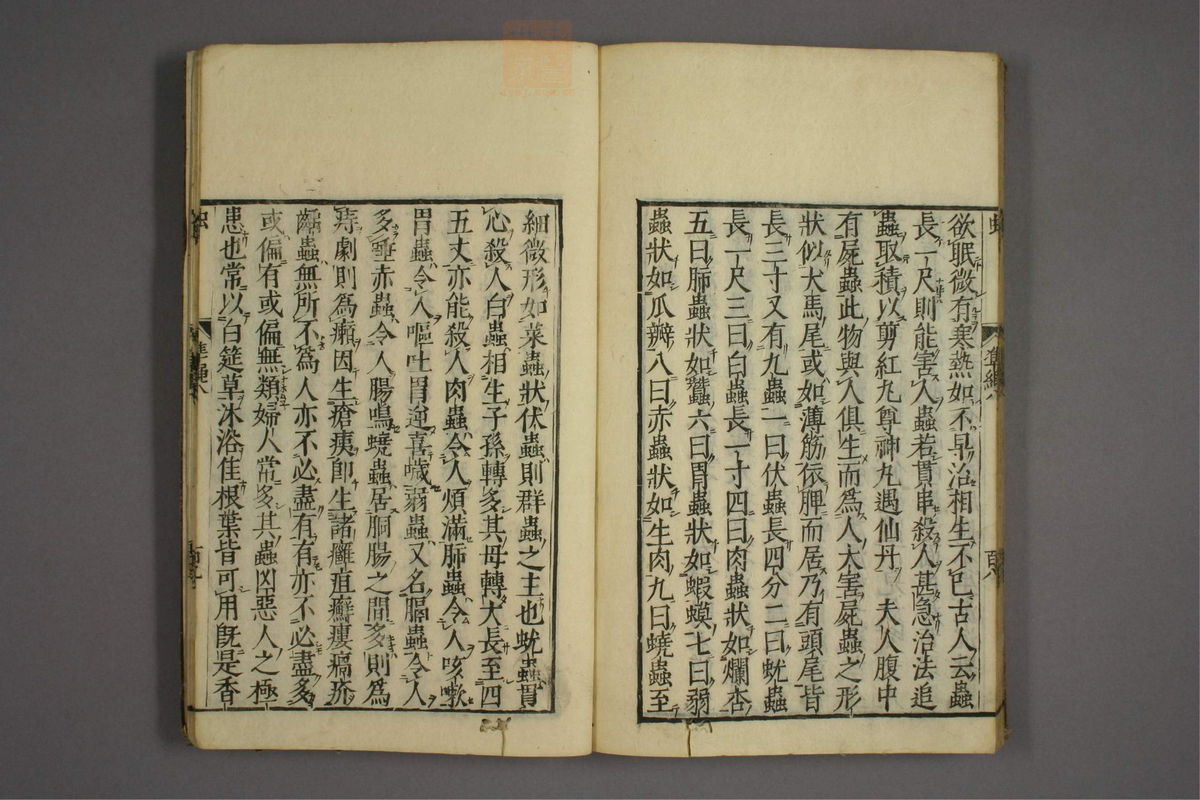 欲眠微有寒熱如不早治相生不已古人云蟲
長一尺則能害人蟲若貫串殺人甚急治法追
蟲取積以剪紅丸尊神丸遇仙丹　夫人腹中
有屍蟲此物與人俱生而為人大害屍蟲之形
狀似犬馬尾或如薄筋依脾而居乃有頭尾皆
長三寸又有九蟲一曰伏蟲長四分二曰蚘蟲
長一尺三曰白蟲長一寸四曰肉蟲狀如爛杏
五曰肺蟲狀如蠶六曰胃蟲狀如蝦蟆七曰弱
蟲狀如瓜瓣八曰赤蟲狀如生肉九曰蟯蟲至
細微形如菜蟲狀伏蟲則群蟲之主也蚘蟲貫
心殺人白蟲相生子孫轉多其母轉大長至四
五丈亦能殺人肉蟲令人煩滿肺蟲令人咳嗽
胃蟲令人嘔吐胃逆喜噦弱蟲又名膈蟲令人
多唾赤蟲令人腸鳴蟯蟲居胴腸之間多則為
痔劇則為癩因生瘡痍即生諸癰疽癬瘻瘑疥
齲蟲無所不為人亦不必盡有有亦不必盡多
或偏有或偏無類婦人常多其蟲凶惡人之極
患也常以白筵草沐浴佳根葉皆可用既是香